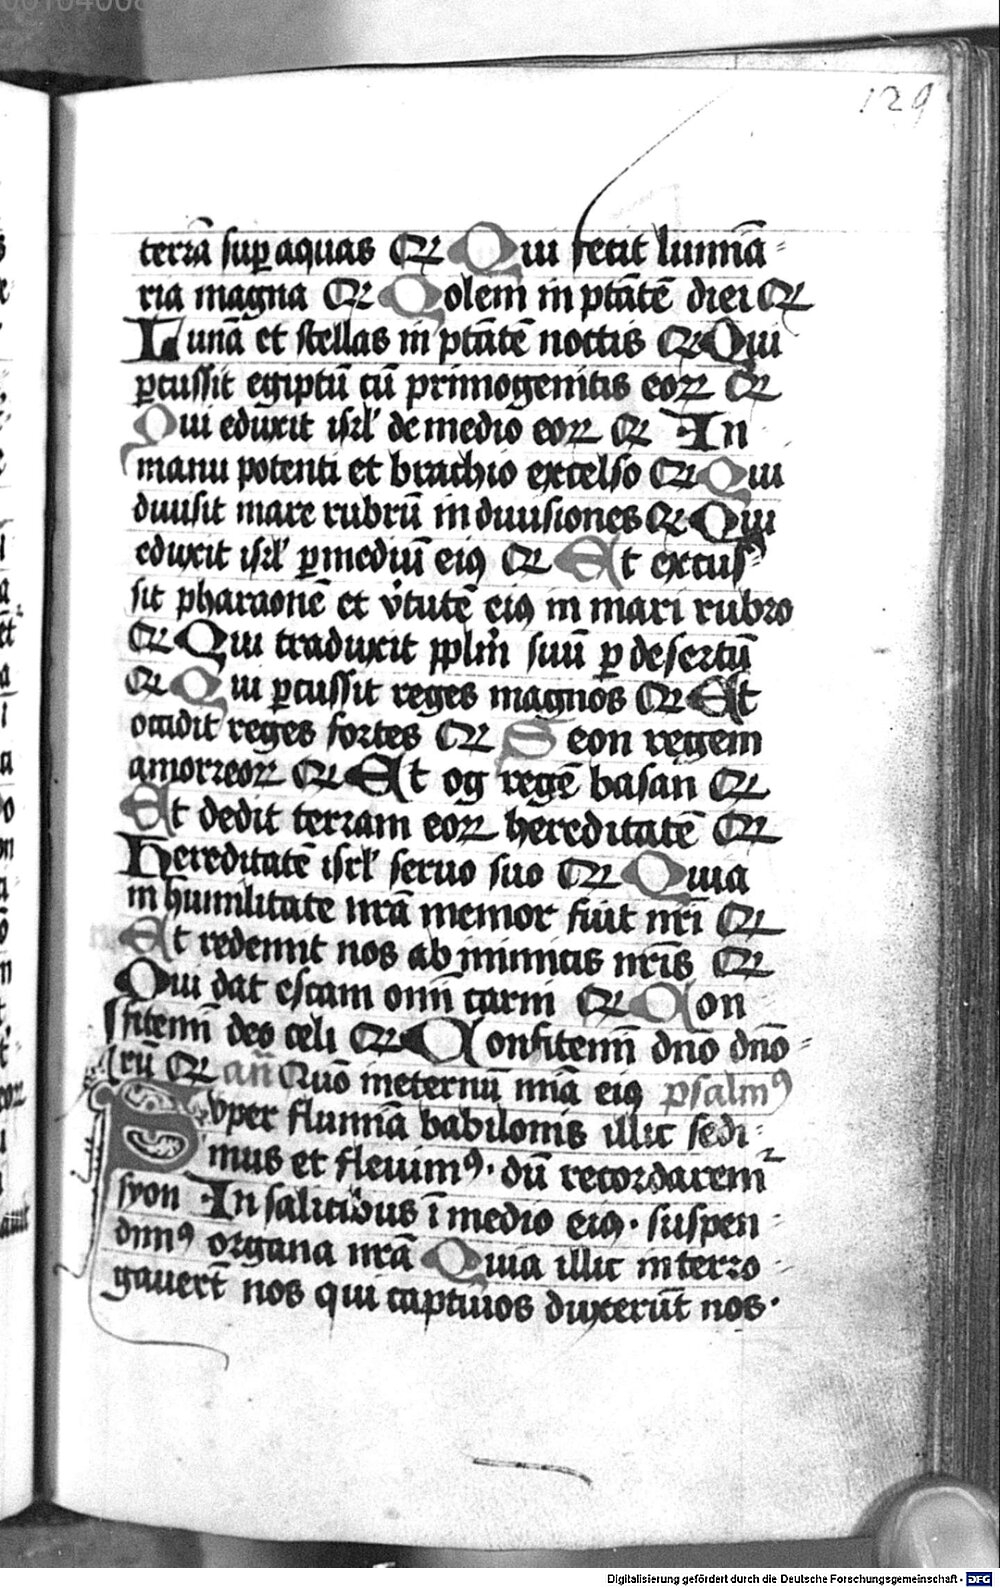 129
terrā sup aquas Qꝛ Qui fecit lumīa⸗
ria magna Qꝛ Solem in ptātē diei Qꝛ
Lunā et stellas in ptātē noctis Qꝛ Qui
ꝑcussit egiptū cū primogenitis eoꝝ Qꝛ
Qui eduxit isrl' de medio eoꝝ Qꝛ In
manu potenti et brachio excelso Qꝛ Qui
diuisit mare rubrū in diuisiones Qꝛ Qui
eduxit isrl' ꝑ mediū eiꝯ Qꝛ Et excus⸗
sit pharaonē et v̓tutē eiꝯ in mari rubro
Qꝛ Qui traduxit pplm̄ suū ꝑ desertū
Qꝛ Qui ꝑcussit reges magnos Qꝛ Et
occidit reges fortes Qꝛ Seon regem
amorreoꝝ Qꝛ Et og regē basan Qꝛ
Et dedit terram eoꝝ hereditatē Qꝛ
Hereditatē isrl' seruo suo Qꝛ Quia
in humilitate nrā memor fuit nrī Qꝛ
Et redemit nos ab inimicis nrīs Qꝛ
Qui dat escam omī carni Qꝛ Con
fitemī deo celi Qꝛ Confitemī dnō dnō⸗
rū Qꝛ an̄ Quō ineternū mīa eiꝯ psalmꝯ
Super flumīa babilonis illic sedi⸗
mus et fleuimꝯ· dū recordaremᷣ
syon In salicibus ī medio eiꝯ· suspen⸗
dimꝯ organa nrā Quia illic interro⸗
gauerūt nos qui captiuos duxerūt nos·
Digitalisierung gefördert durch die Deutsche Forschungsgemeinschaft - DFG